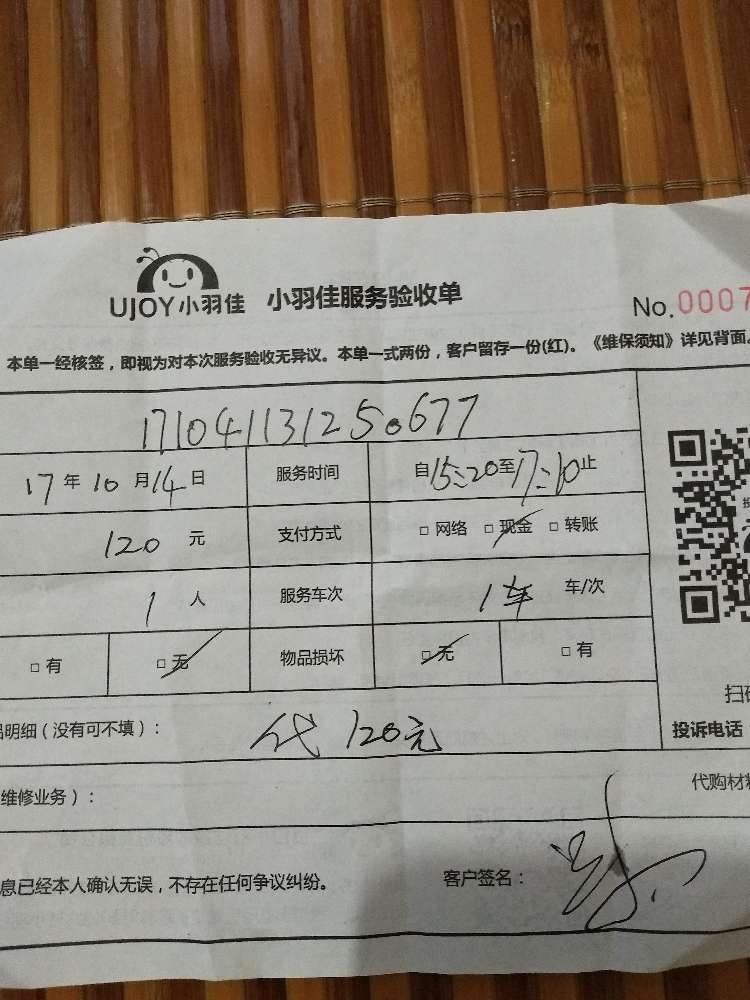 UJOY小羽佳 小羽佳服务验收单
No.0007
本单一经核签，即视为对本次服务验收无异议。本单一式两份，客户留存一份(红)。《维保须知》详见背面。
171041131250677
17年10月14日 服务时间 自15:20至17:10止
120元 支付方式 □网络 □现金 □转账
1人 服务车次 1车 车/次
□有 □无 物品损坏 □无 □有
扫码
明细（没有可不填）： 代120元 投诉电话
维修业务）： 代购材料
息已经本人确认无误，不存在任何争议纠纷。 客户签名：